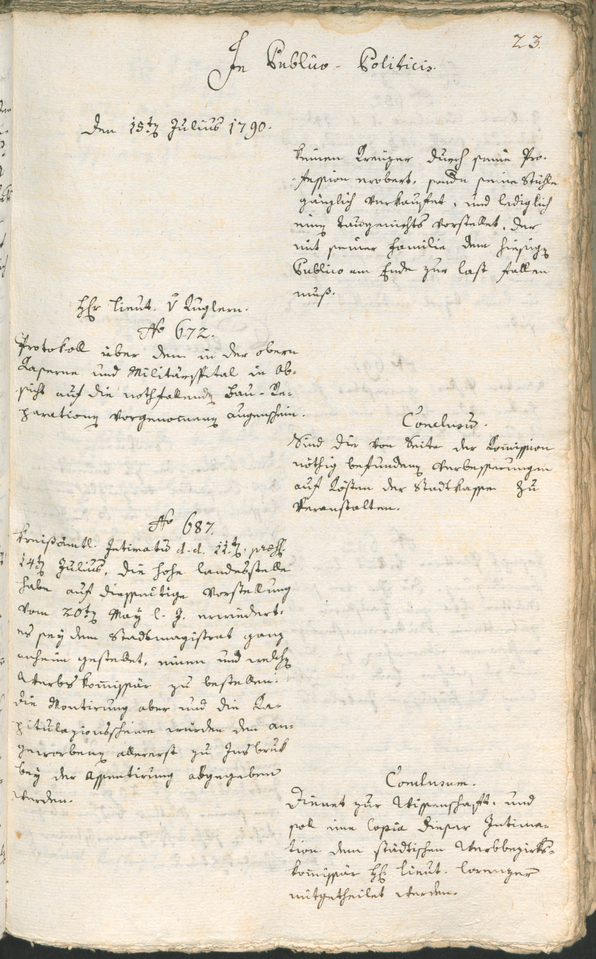 23.
In Publico-Politicis.
Den 15tn Julius 1790.
keinen Kreuzer durch seine Pro-
fession erobert, sonder seine Stühle
gänzlich verkauffet, und lediglich
einen Taugenichts vorstellet, der
mit seiner Familie dem hiesign
Publico am Ende zur last fallen
muß.
Hr Lieut. v Kuglern.
No 672.
Protokoll über dem in der obern
Kaserne und Militärspital in Ab-
sicht auf die nothfallendn Bau-Re-
parationn vorgenomenn Augenschein.
Conclusum.
Sind die von Seite der Komission
nöthig befundenn Verbesserungen
auf Kösten der Stadtkasse zu
veranstalten.
No 687.
Kreißämtl. Intimatum d.d. 11tn præs.
14tn Julius, die hohe Landesstelle
habe auf diesseitige Vorstellung
vom 20tn May l. J. erwiedert:
es sey dem Stadtmagistrat ganz
anheim gestellet, einen und welchn
Werbkommissär zu bestellen:
die Montirung aber und die Ka-
pitulazionsscheine würden den an-
geworbenn allererst zu Insbruk
bey der Assentirung abgegeben
werden.
Conclusum.
Dienet zur Wissenschaft, und
sol eine Copia dieser Intima-
tion dem städtischen Werbbezirks-
kommissär Hr Lieut. Lorenzer
mitgetheilet werden.